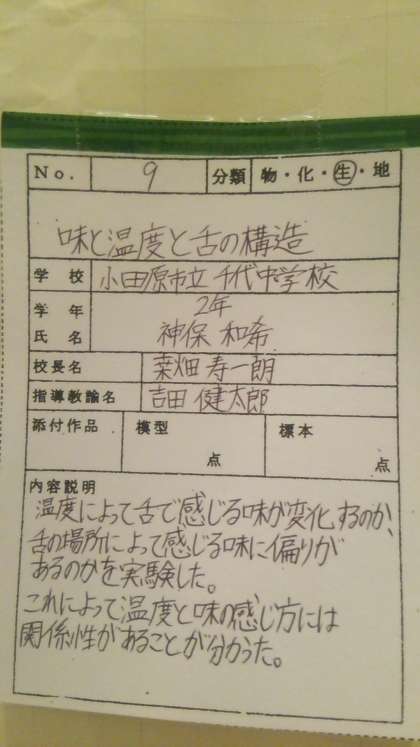 No. 9 分類 物・化・生・地
味と温度と舌の構造
学校 小田原市立 千代中学校
学年 2年
氏名 神保 和希
校長名 桒畑 寿一朗
指導教諭名 吉田 健太郎
添付作品 模型 点 標本 点
内容説明
温度によって舌で感じる味が変化するのか、
舌の場所によって感じる味に偏りが
あるのかを実験した。
これによって温度と味の感じ方には
関係性があることが分かった。